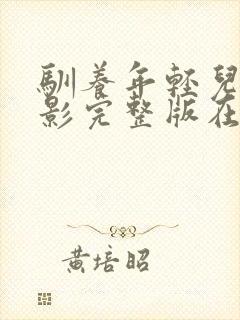 馴養年輕兒
影完整版在
黃培昭